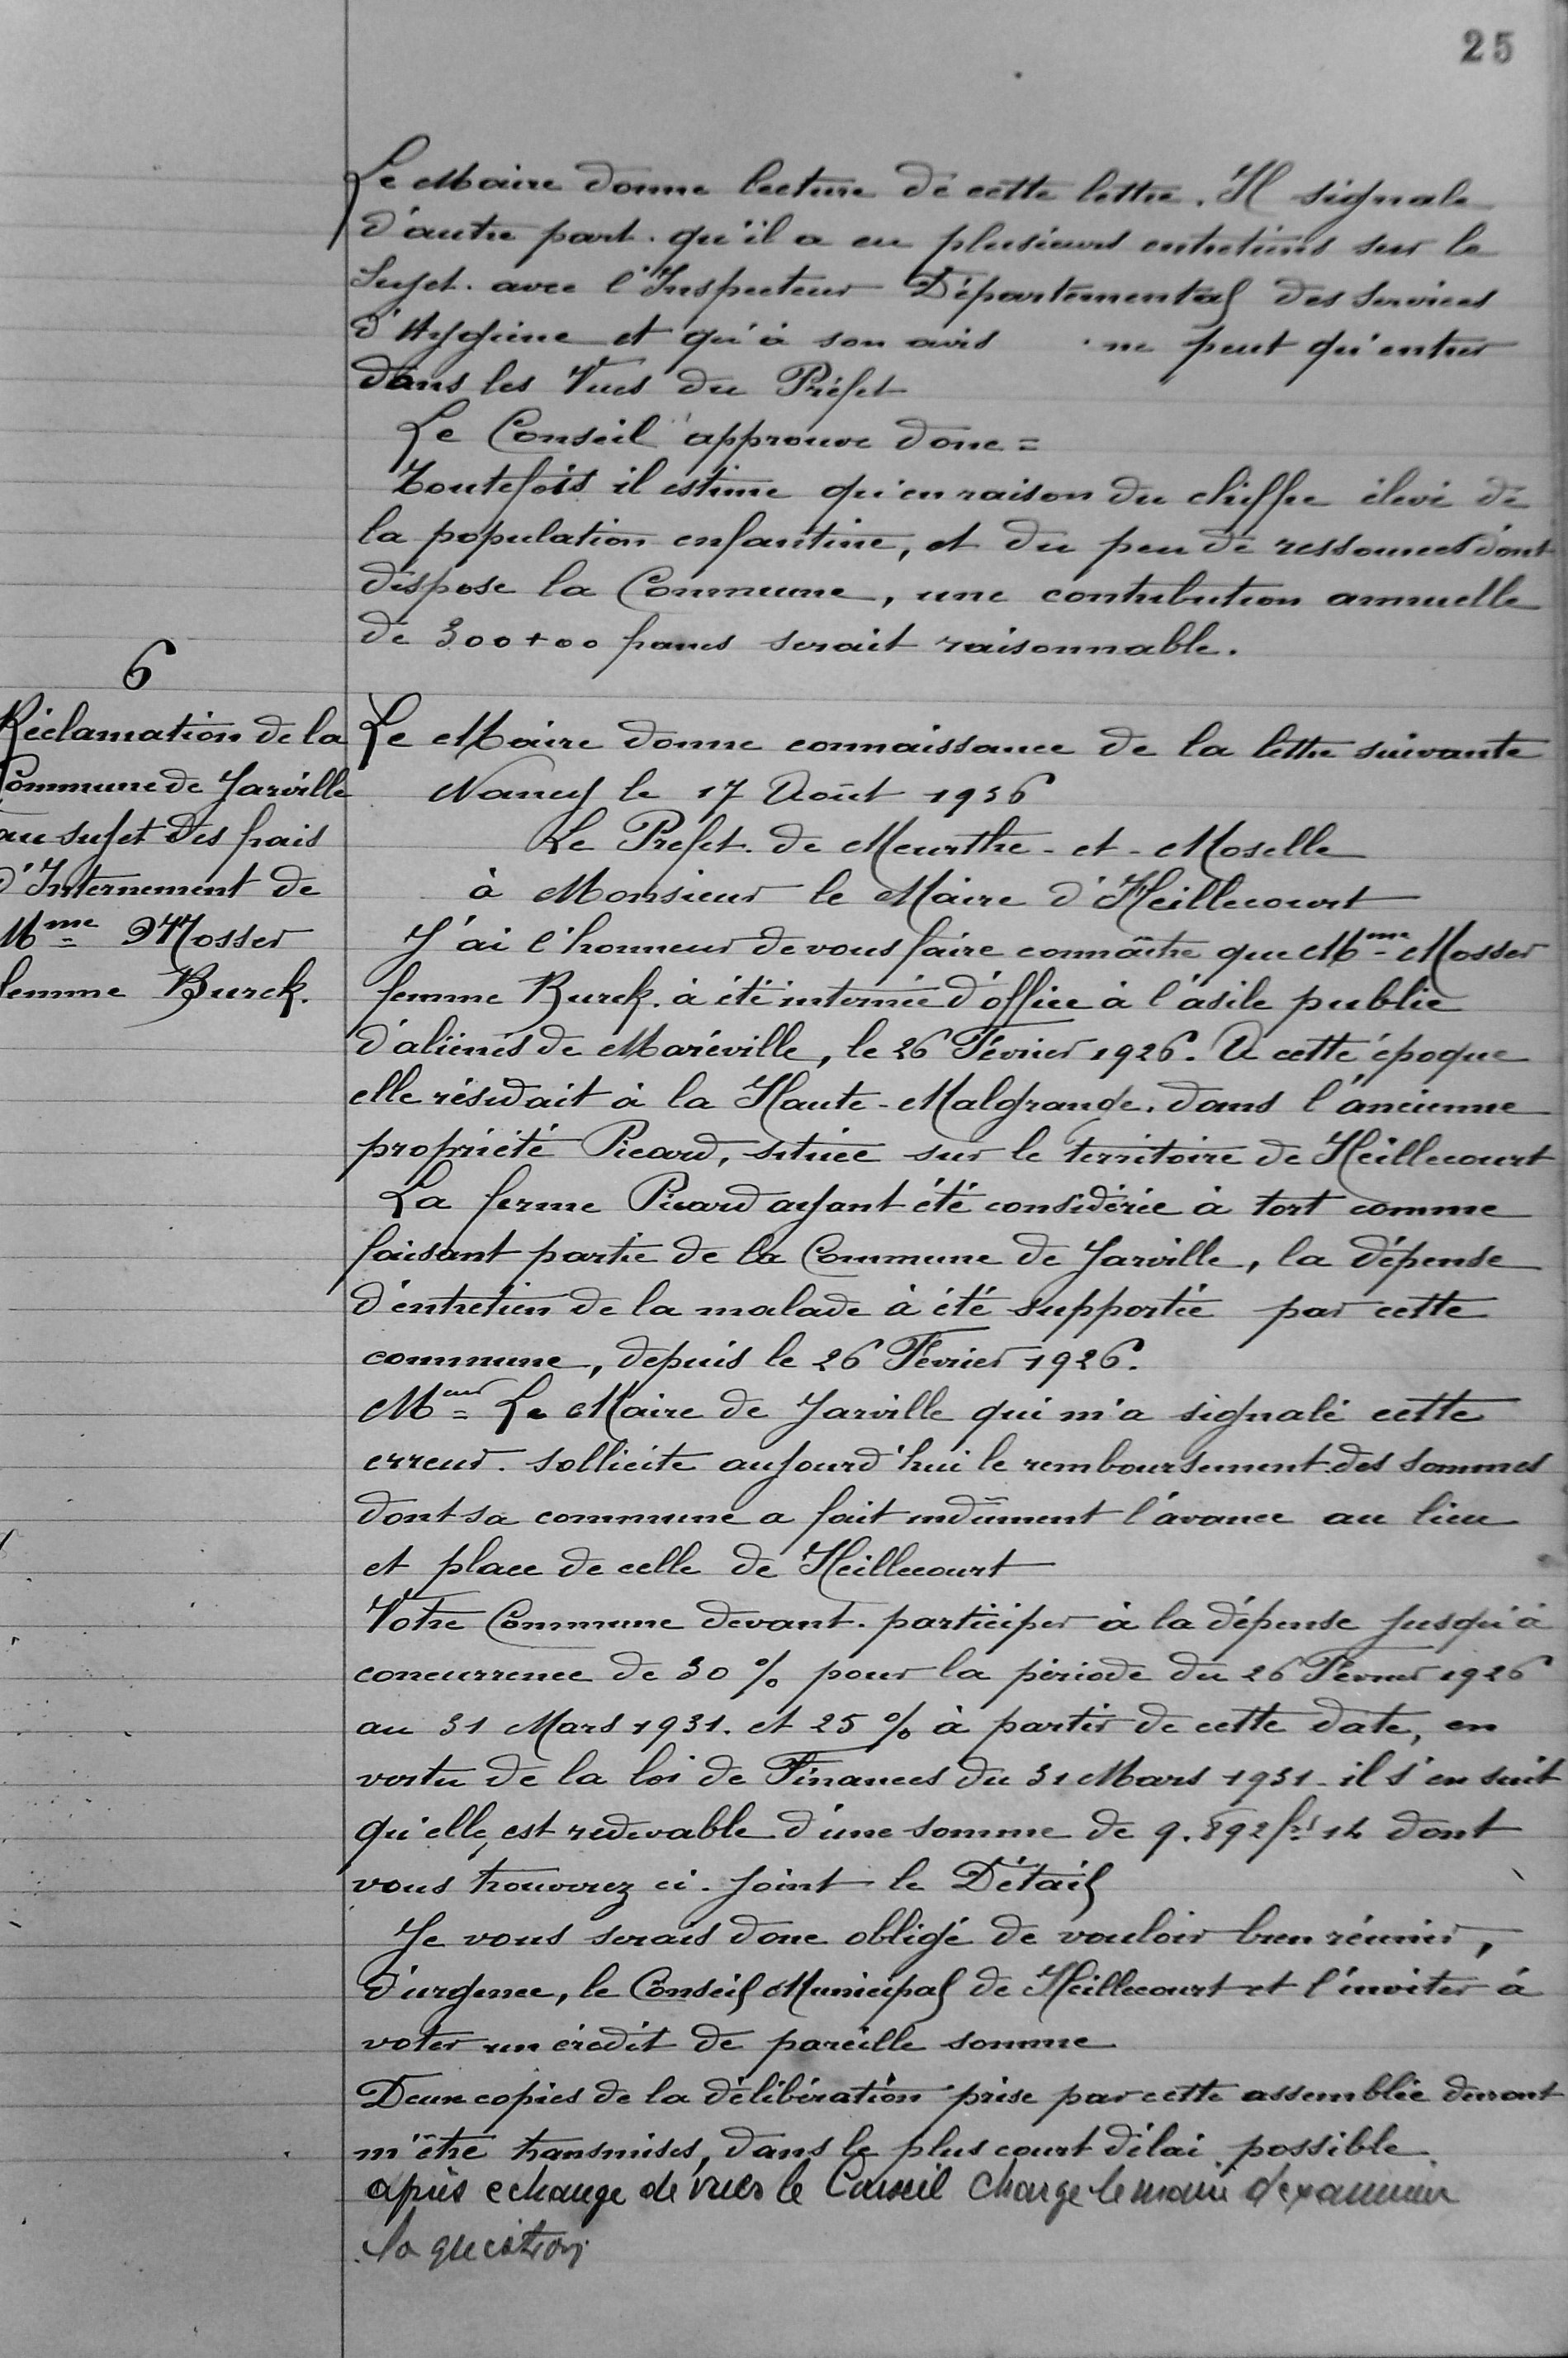 25
Le Maire donne lecture de cette lettre. Il signale
d'autre part. qu'il a eu plusieurs entretiens sur le
Sujet. avec l'Inspecteur Départemental des Services
d'Hygiène et qu'à son avis ne peut qu'entrer
dans les Vues du Préfet
Le Conseil approuve donc =
Toutefois il estime qu'en raison du chiffre élevé de
la population enfantine, et du peu de ressources dont
dispose la Commune, une contribution annuelle
de 300+00 francs serait raisonnable.
6
Réclamation de la
Commune de Jarville
au sujet des frais
d'Internement de
Mme Mosser
femme Burck.
Le Maire donne connaissance de la lettre suivante
Nancy le 17 Août 1936
Le Préfet. de Meurthe-et-Moselle
à Monsieur le Maire d'Heillecourt
J'ai l'honneur de vous faire connaître que Mme Mosser
femme Burck. à été internée d'office à l'asile public
d'aliénés de Maréville, le 26 Février 1926. A cette époque
elle résidait à la Haute-Malgrange. dans l'ancienne
propriété Picard, située sur le territoire de Heillecourt
La ferme Picard ayant été considérée à tort comme
faisant partie de la Commune de Jarville, la dépense
d'entretien de la malade à été supportée par cette
commune, depuis le 26 Février 1926.
Meur Le Maire de Jarville qui m'a signalé cette
erreur. sollicite aujourd'hui le remboursement des sommes
dont sa commune a fait indûment l'avance au lieu
et place de celle de Heillecourt
Votre Commune devant. participer à la dépense jusqu'à
concurrence de 30 % pour la période du 26 Février 1926
au 31 Mars 1931. et 25 % à partir de cette date, en
vertu de la loi de Finances du 31 Mars 1931. il s'en suit
qu'elle est redevable d'une somme de 9.892 frs 14 dont
vous trouverez ci-joint le Détail
Je vous serais donc obligé de vouloir bien réunir,
d'urgence, le Conseil Municipal de Heillecourt et l'inviter à
voter un crédit de pareille somme
Deux copies de la délibération prise par cette assemblée devront
m'être transmises, dans le plus court délai possible.
après echange de vues le Conseil charge le maire d'examiner
la question